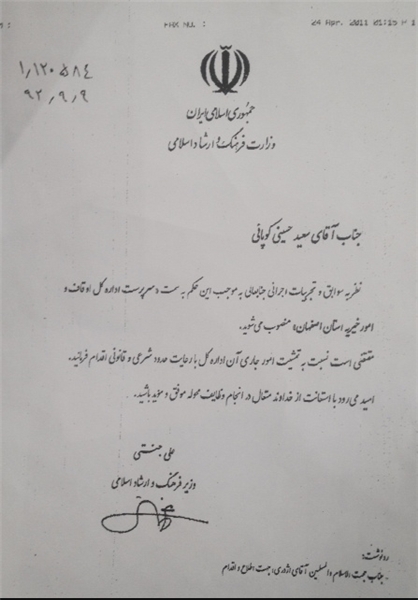 FAX NO. :
24 Apr. 2011 01:15 P 1
۱٫۱۲۰۵۸۴
۹۲٫۹٫۹
جمهوری اسلامی ایران
وزارت فرهنگ و ارشاد اسلامی
جناب آقای سعید حسینی کوپائی
نظر به سوابق و تجربیات اجرائی جنابعالی به موجب این حکم به سمت «سرپرست اداره کل اوقاف و
امور خیریه استان اصفهان» منصوب می‌شوید.
مقتضی است نسبت به تمشیت امور جاری آن اداره کل با رعایت حدود شرعی و قانونی اقدام فرمائید.
امید می‌رود با استعانت از خداوند متعال در انجام وظایف محوله موفق و مؤید باشید.
علی جنتی
وزیر فرهنگ و ارشاد اسلامی
رونوشت:
- جناب حجت الاسلام والمسلمین آقای اژدری؛ جهت اطلاع و اقدام